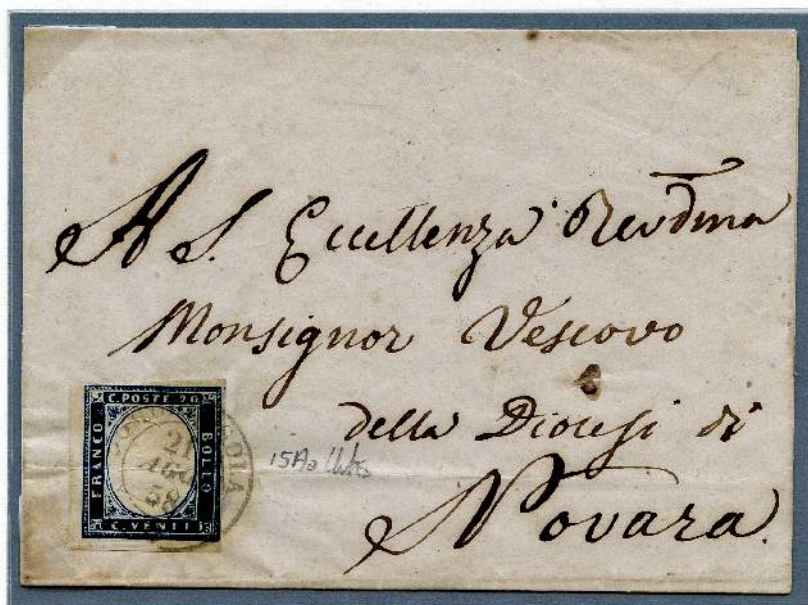 A S. Eccellenza Revdma
Monsignor Vescovo
della Diocesi di
Novara
C. POSTE 20
FRANCO
BOLLO
C. VENTI
21
58
15Aa